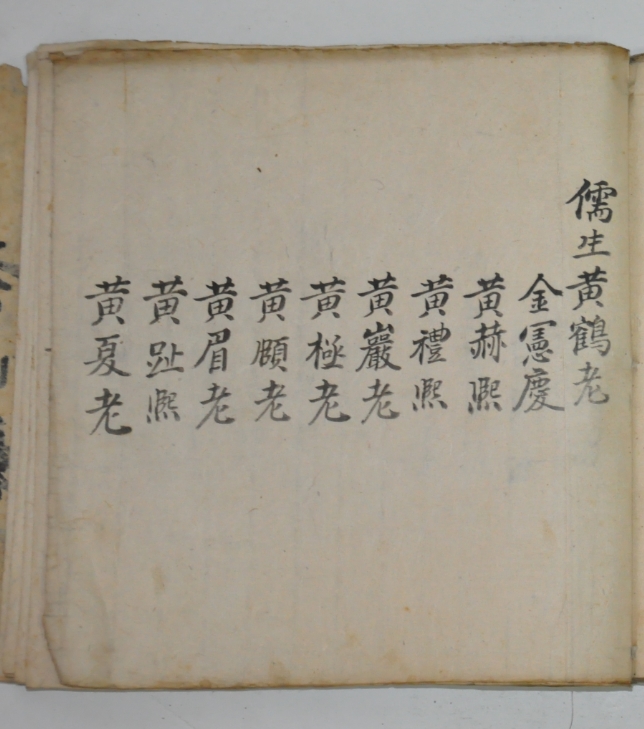 儒生黃鶴老
金憲慶
黃赫熙
黃禮熙
黃巖老
黃極老
黃頥老
黃眉老
黃趾熙
黃夏老